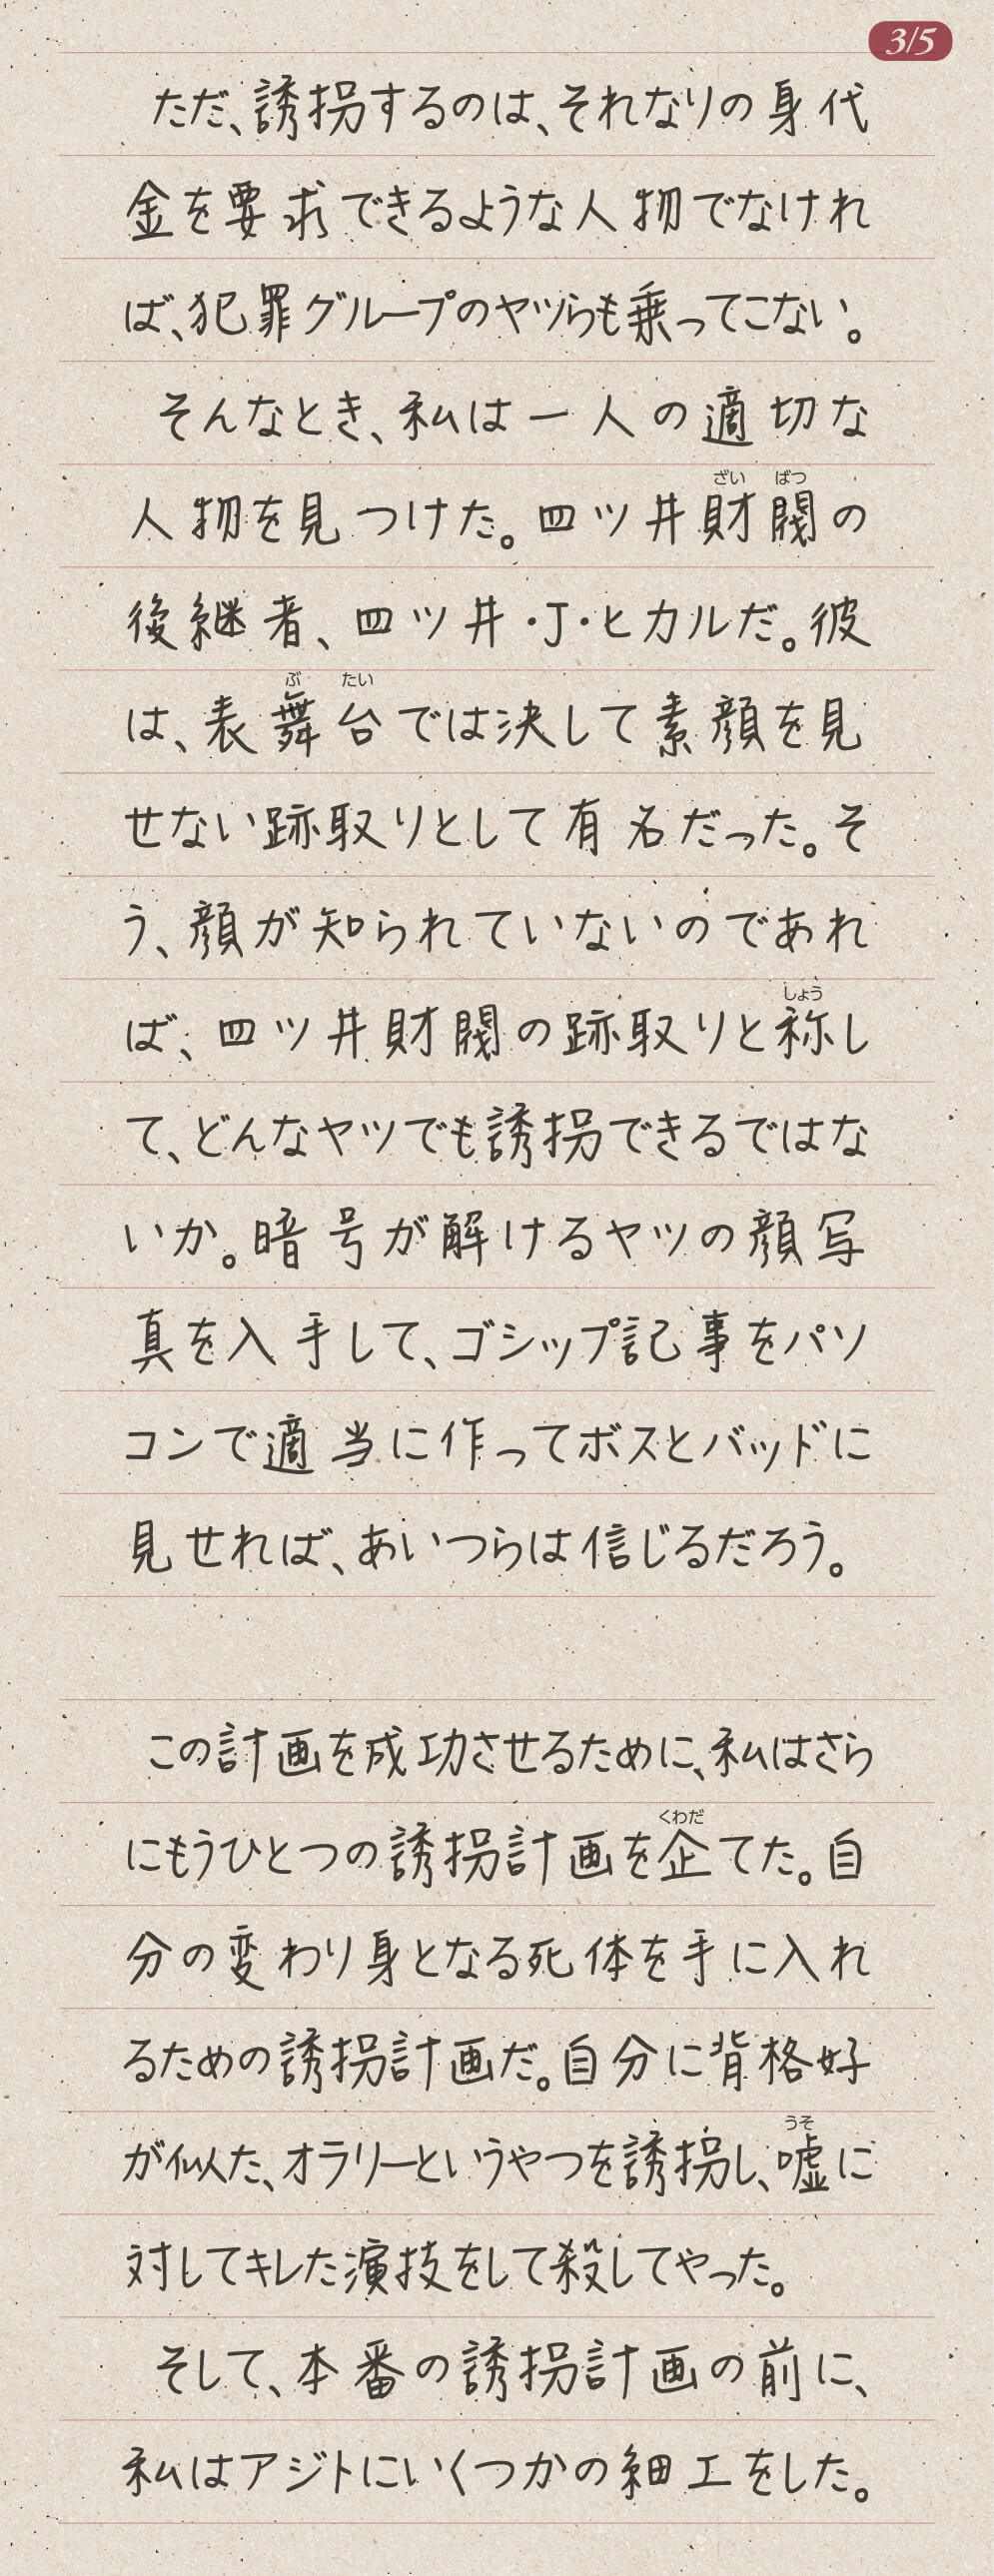 3/5
ただ、誘拐するのは、それなりの身代
金を要求できるような人物でなけれ
ば、犯罪グループのヤツらも乗ってこない。
そんなとき、私は一人の適切な
ざい ばつ
人物を見つけた。四ツ井財閥の
後継者、四ツ井・J・ヒカルだ。彼
ぶ たい
は、表舞台では決して素顔を見
せない跡取りとして有名だった。そ
う、顔が知られていないのであれ
しょう
ば、四ツ井財閥の跡取りと称し
て、どんなヤツでも誘拐できるではな
いか。暗号が解けるヤツの顔写
真を入手して、ゴシップ記事をパソ
コンで適当に作ってボスとバッドに
見せれば、あいつらは信じるだろう。
この計画を成功させるために、私はさら
くわだ
にもうひとつの誘拐計画を企てた。自
分の変わり身となる死体を手に入れ
るための誘拐計画だ。自分に背格好
うそ
が似た、オラリーというやつを誘拐し、嘘に
対してキレた演技をして殺してやった。
そして、本番の誘拐計画の前に、
私はアジトにいくつかの細工をした。